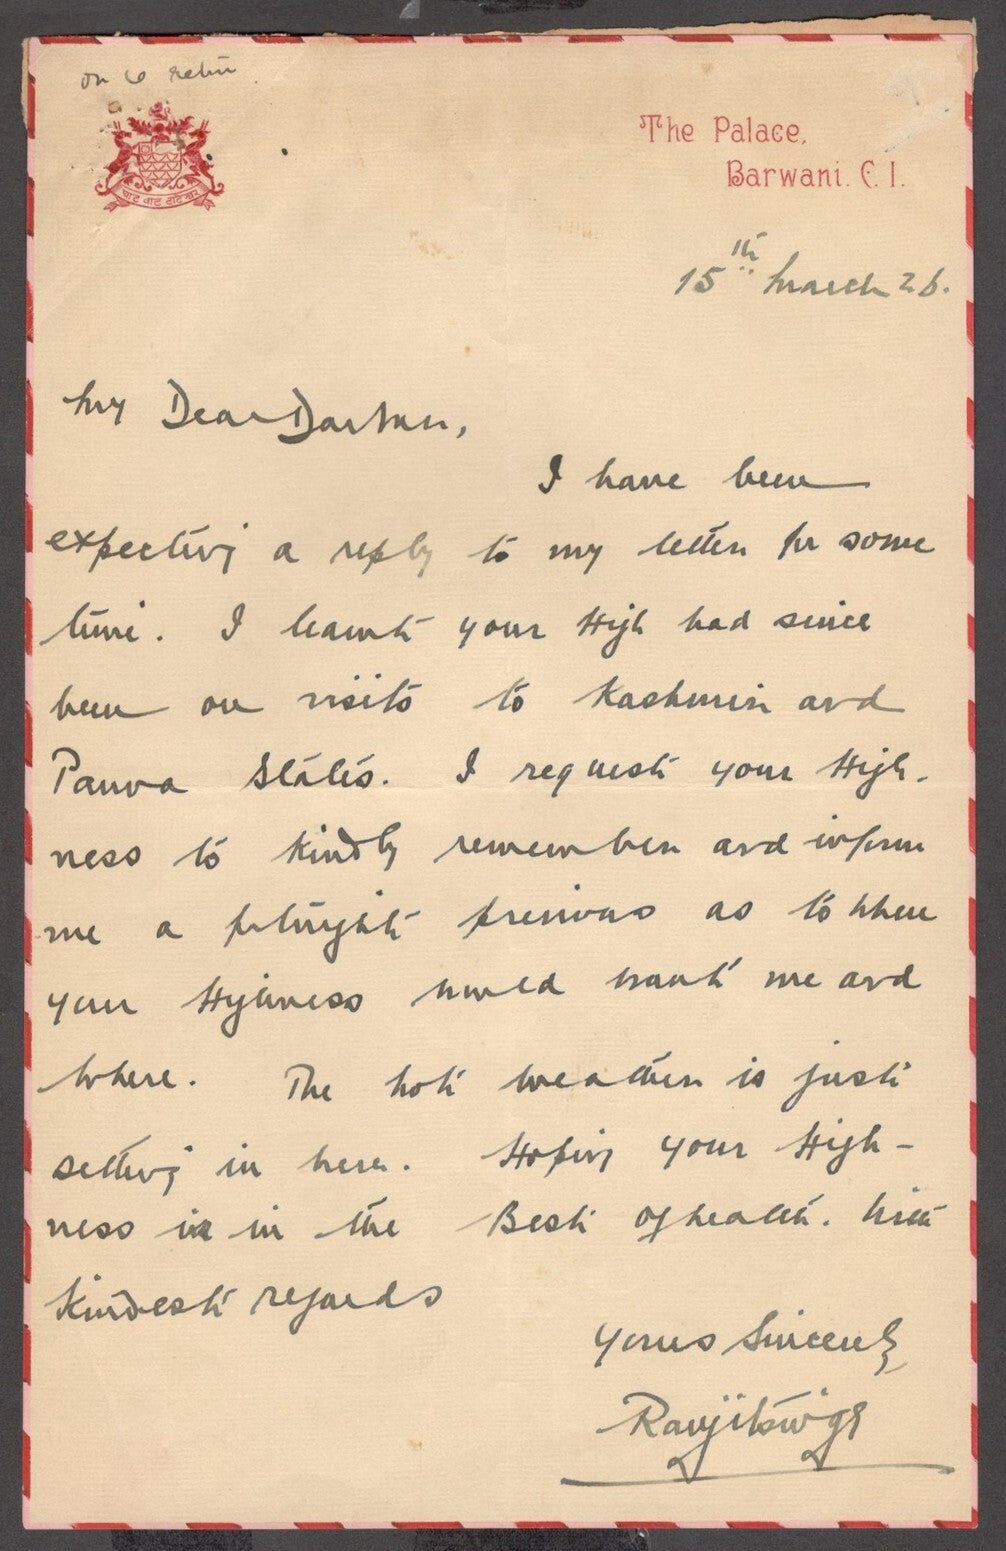 on to
The Palace,
Barwani. C. I.
15th March 26.
My Dear Darbar,
I have been
expecting a reply to my letter for some
time. I learnt your High had since
been on visits to Kashmir and
Panna States. I request your High-
ness to kindly remember and inform
me a fortnight previous as to when
your Highness would want me and
where. The hot weather is just
setting in here. Hoping your High-
ness is in the Best of health. With
kindest regards
Yours Sincerely
Ranjitsingh